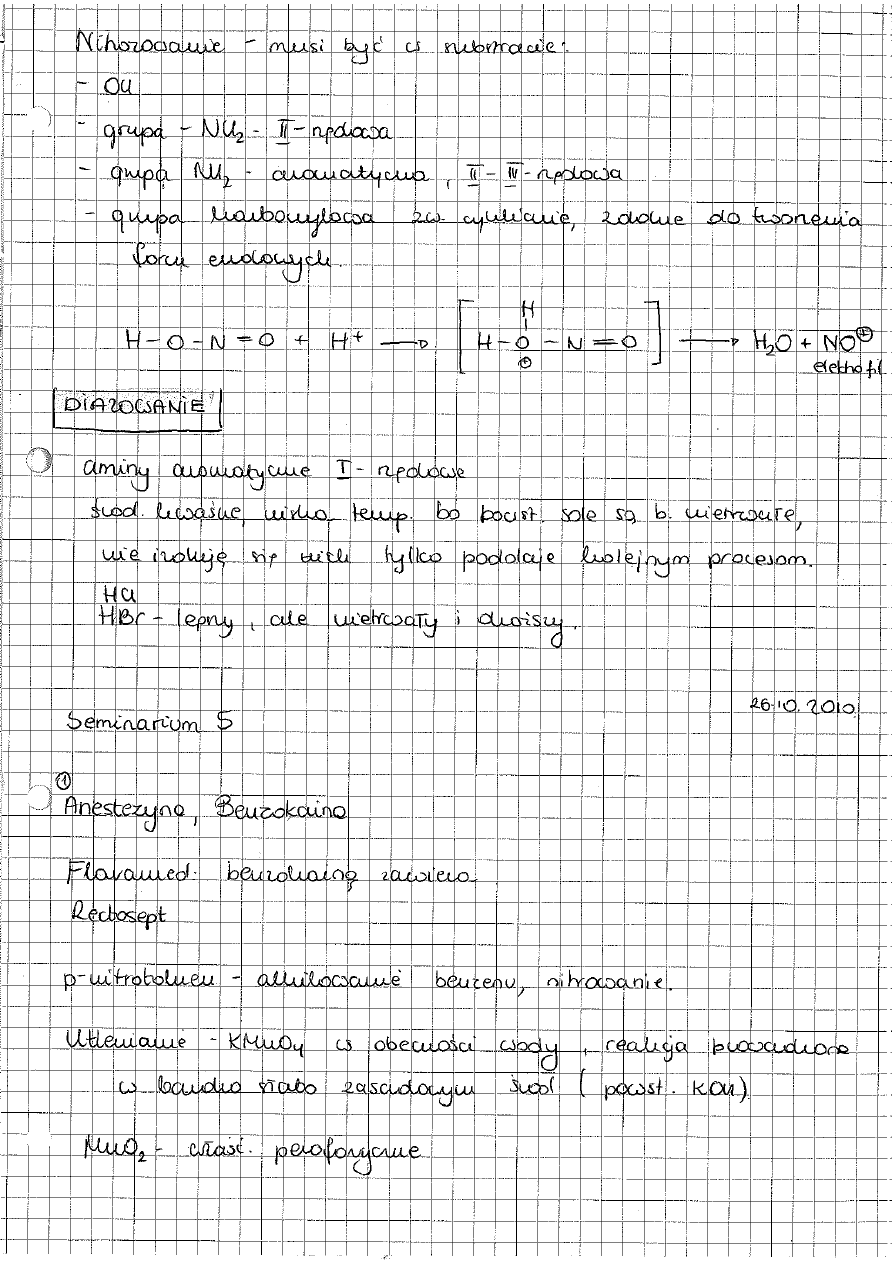 Nitrozowanie - musi być w substracie:
- OH
- grupa - NH2 - II-rzędowa
- grupa NH2 - aromatyczna, II-III-rzędowa
- grupa karbonylowa zw. cykliczne, zdolne do tworzenia
form enolowych.
H-O-N=O + H+ → [H-O(H)⊕-N=O] → H2O + NO⊕
elektrofil
DIAZOWANIE
aminy aromatyczne I-rzędowe
środ. kwaśne, niska temp. bo powst. sole są b. nietrwałe,
nie izoluje się nich tylko poddaje kolejnym procesom.
HCl
HBr - lepszy, ale nietrwały i droższy.
26.10.2010
Seminarium 5
①
Anestezyna, Benzokaina
Flavamed. benzokainę zawiera
Rectosept
p-nitrotoluen - alkilowanie benzenu, nitrowanie.
Utlenianie - KMnO4 w obecności wody, reakcja prowadzona
w bardzo słabo zasadowym środ (powst. KOH)
MnO2 - właść. piroforyczne